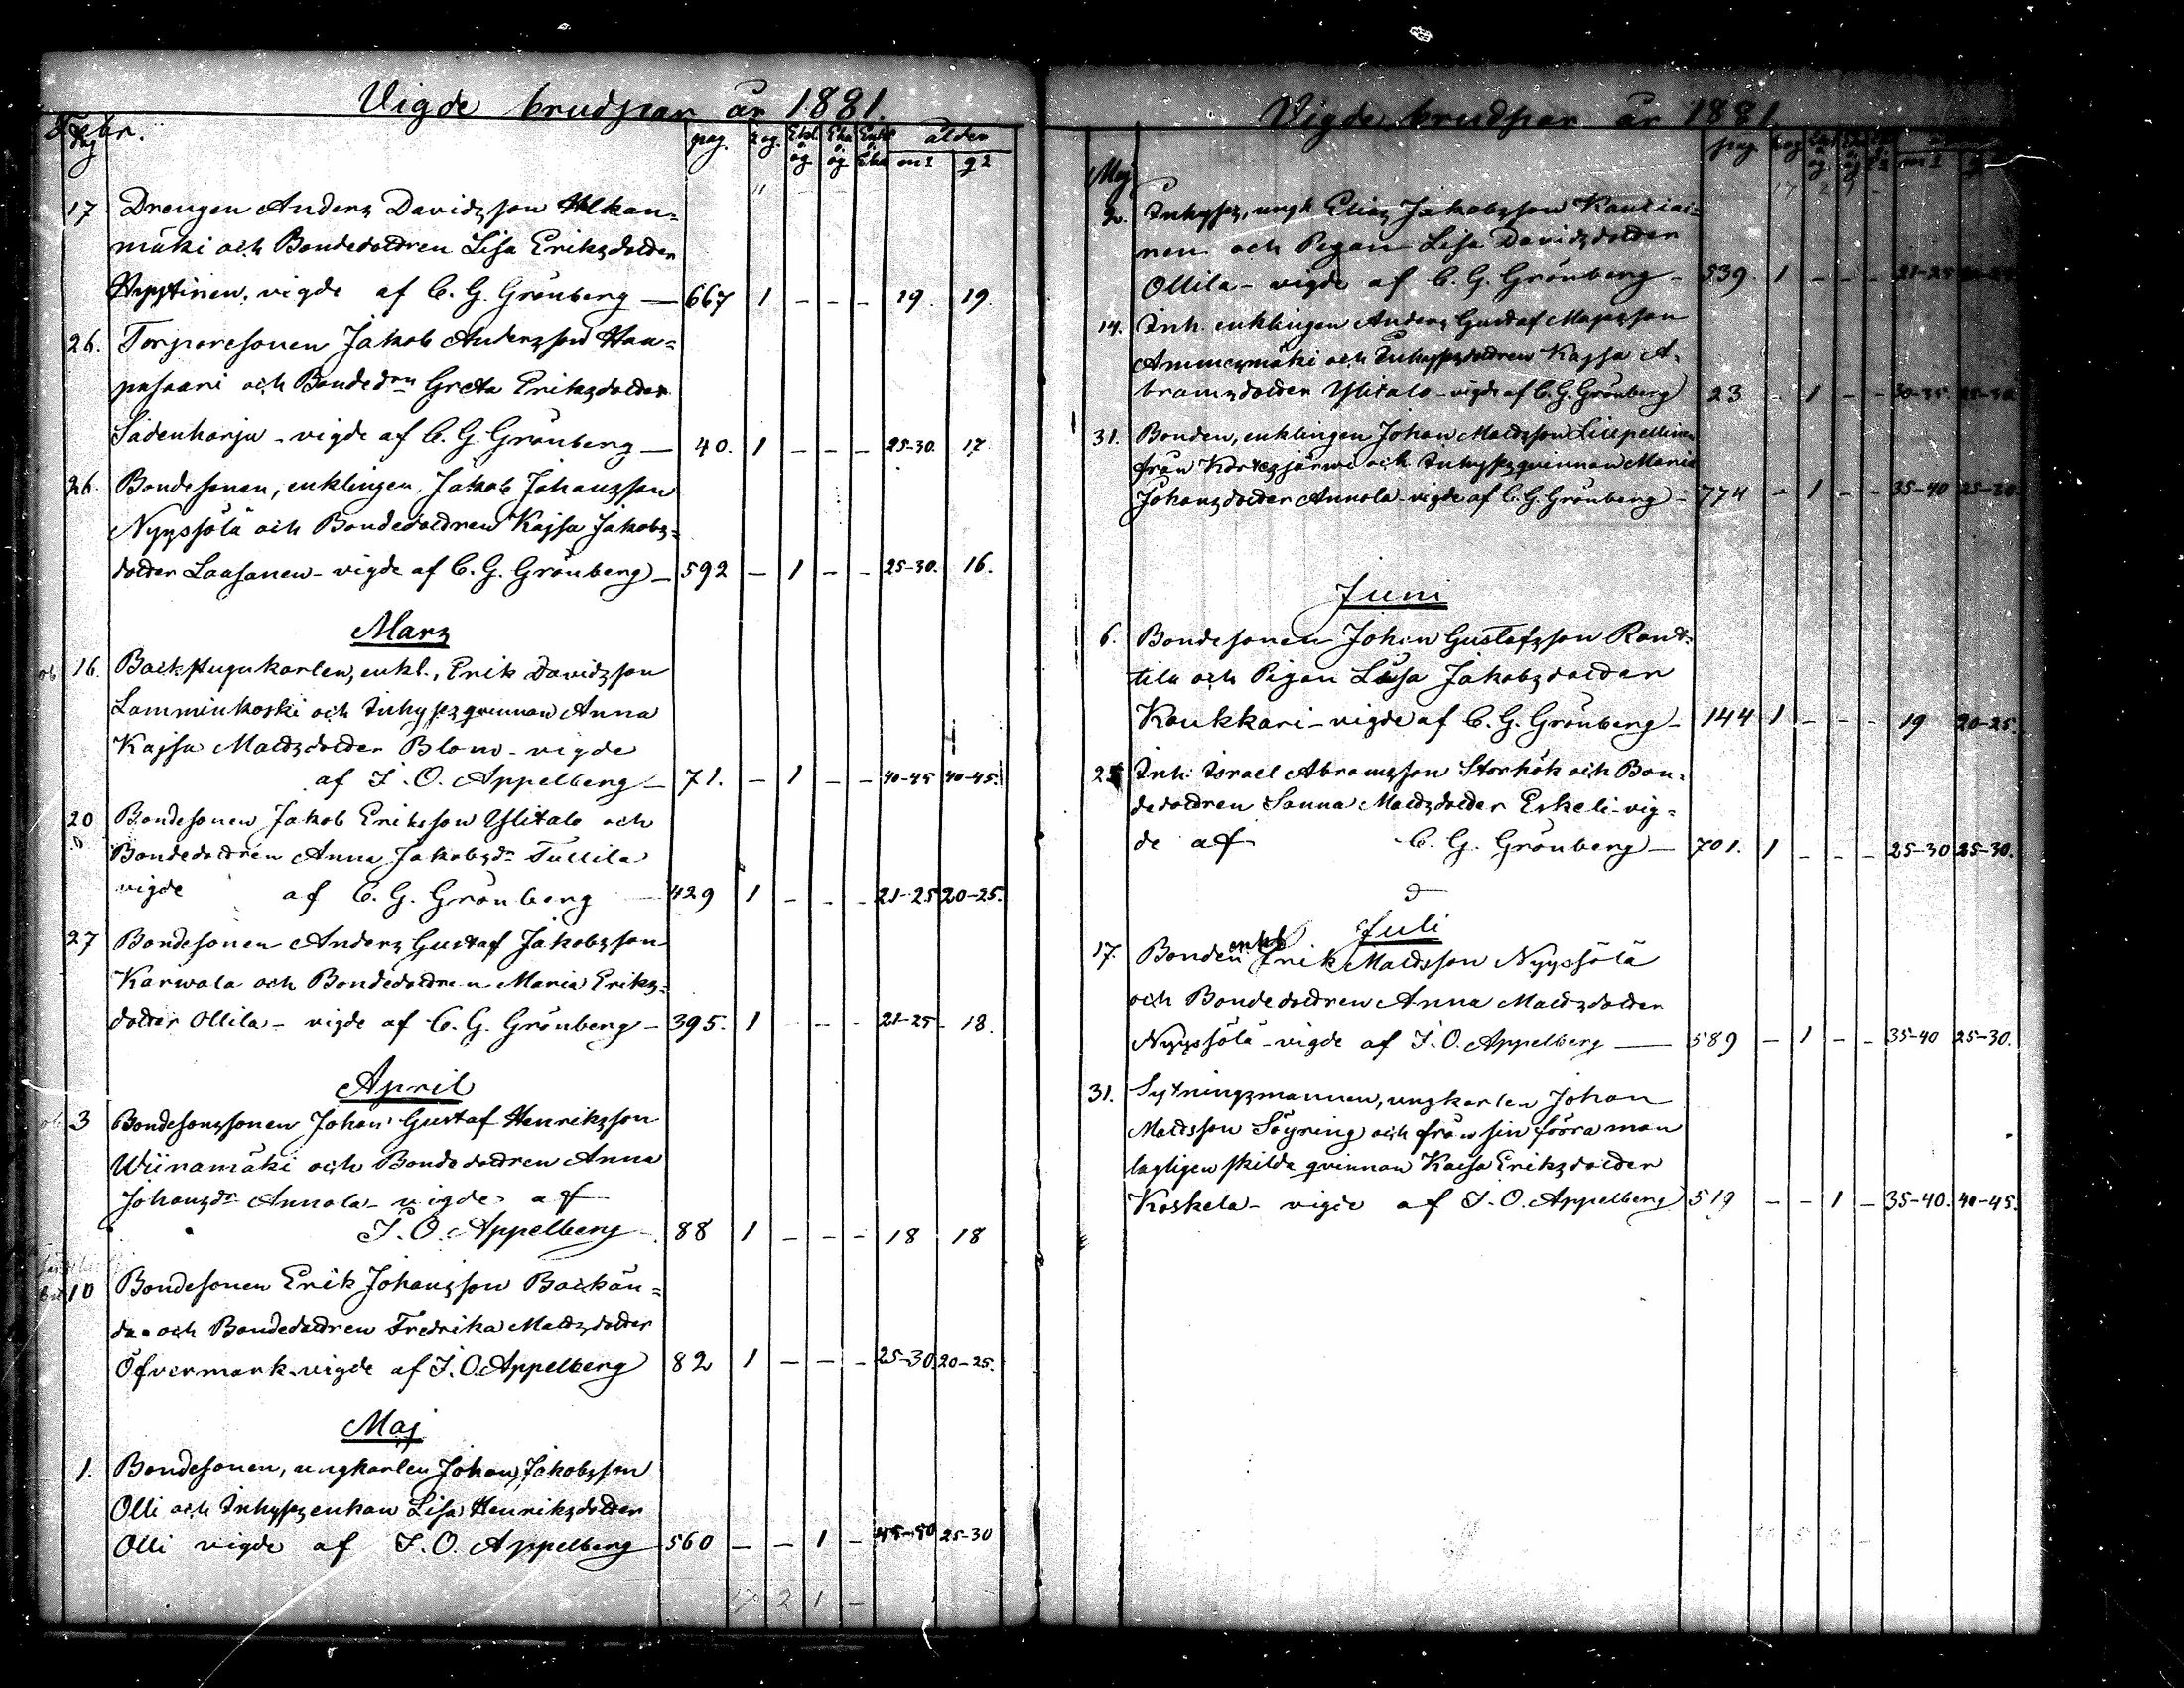 Vigde brudpar år 1881.
Febr.
dag pag. 2 og. Enkl. o. og Eka o. og Enkl o. Eka ålder
m k q k
17 Drengen Anders Davidsson Alkan=
mäki och Bondedottren Lisa Eriksdotter
Hyytinen, vigde af C. G. Grönberg — 667 1 – – – 19. 19.
26. Torparesonen Jakob Andersson Haa=
pasaari och Bondedrn Greta Eriksdotter
Sadenharju – vigde af C. G. Grönberg — 40. 1 – – – 25-30. 17
26. Bondesonen, enklingen Jakob Johansson
Nyyssölä och Bondedottren Kajsa Jakobs=
dotter Laasanen – vigde af C. G. Grönberg – 592 – 1 – – 25-30. 16.
Mars
16. Backstugukarlen, enkl., Erik Davidsson
Lamminkoski och Inhysesqvinnan Anna
Kajsa Mattsdotter Blom – vigde
af I. O. Appelberg – 71. – 1 – – 40-45 40-45.
20 Bondesonen Jakob Eriksson Ylitalo och
Bondedottren Anna Jakobsdr Tullila
vigde af C. G. Grönberg — 429 1 – – – 21-25 20-25.
27 Bondesonen Anders Gustaf Jakobsson
Karwala och Bondedottren Maria Eriks=
dotter Ollila – vigde af C. G. Grönberg – 395. 1 – – 21-25 18.
April
3 Bondesonssonen Johan Gustaf Henriksson
Wiinamäki och Bondedottren Anna
Johansdr Annala – vigde af
I. O. Appelberg – 88 1 – – – 18 18
10 Bondesonen Erik Johansson Backän=
da och Bondedottren Fredrika Mattsdotter
Öfvermark – vigde af I. O. Appelberg 82 1 – – – 25-30. 20-25.
Maj
1. Bondesonen, ungkarlen Johan Jakobsson
Olli och Inhysesenkan Lisa Henriksdotter
Olli vigde af I. O. Appelberg 560 – – 1 – 45-50 25-30
17 2 1 –
Vigde brudpar år 1881.
Maj pag.
17 2 1 –
2. Inhyses, ungk Elias Jakobsson Kauciai=
nen och Pigan Lisa Davidsdotter
Ollila – vigde af C. G. Grönberg – 539. 1 – – – 21-25
14. Inh. enklingen Anders Gustaf Majasson
Ammesmäki och Inhysesdottren Kajsa A=
bramsdotter Ylitalo – vigde af C. G. Grönberg 23 – 1 – – 30-35. 25-30
31. Bonden, enklingen Johan Mattsson
från Kortesjärwi och Inhysesqvinnan Maria
Johansdotter Annola – vigde af C. G. Grönberg – 774 – 1 – – 35-40 25-30.
Juni
6. Bondesonen Johan Gustafsson Rant=
tila och Pigan Lisa Jakobsdotter
Koukkari – vigde af C. G. Grönberg – 144 1 – – – 19 20-25.
25 Inh. Israel Abramsson Storhök och Bon=
dedottren Sanna Mattsdotter Eskeli – vig=
de af C. G. Grönberg — 701. 1 – – – 25-30 25-30.
Juli
17. Bonden enkl Erik Mattsson Nyyssölä
och Bondedottren Anna Mattsdotter
Nyyssölä – vigde af I. O. Appelberg — 589 – 1 – – 35-40 25-30.
31. Sytningsmannen, ungkarlen Johan
Mattsson Söyring och från sin förra man
lagligen skilda qvinnan Kaisa Eriksdotter
Koskela – vigde af I. O. Appelberg 519 – – 1 – 35-40. 40-45.